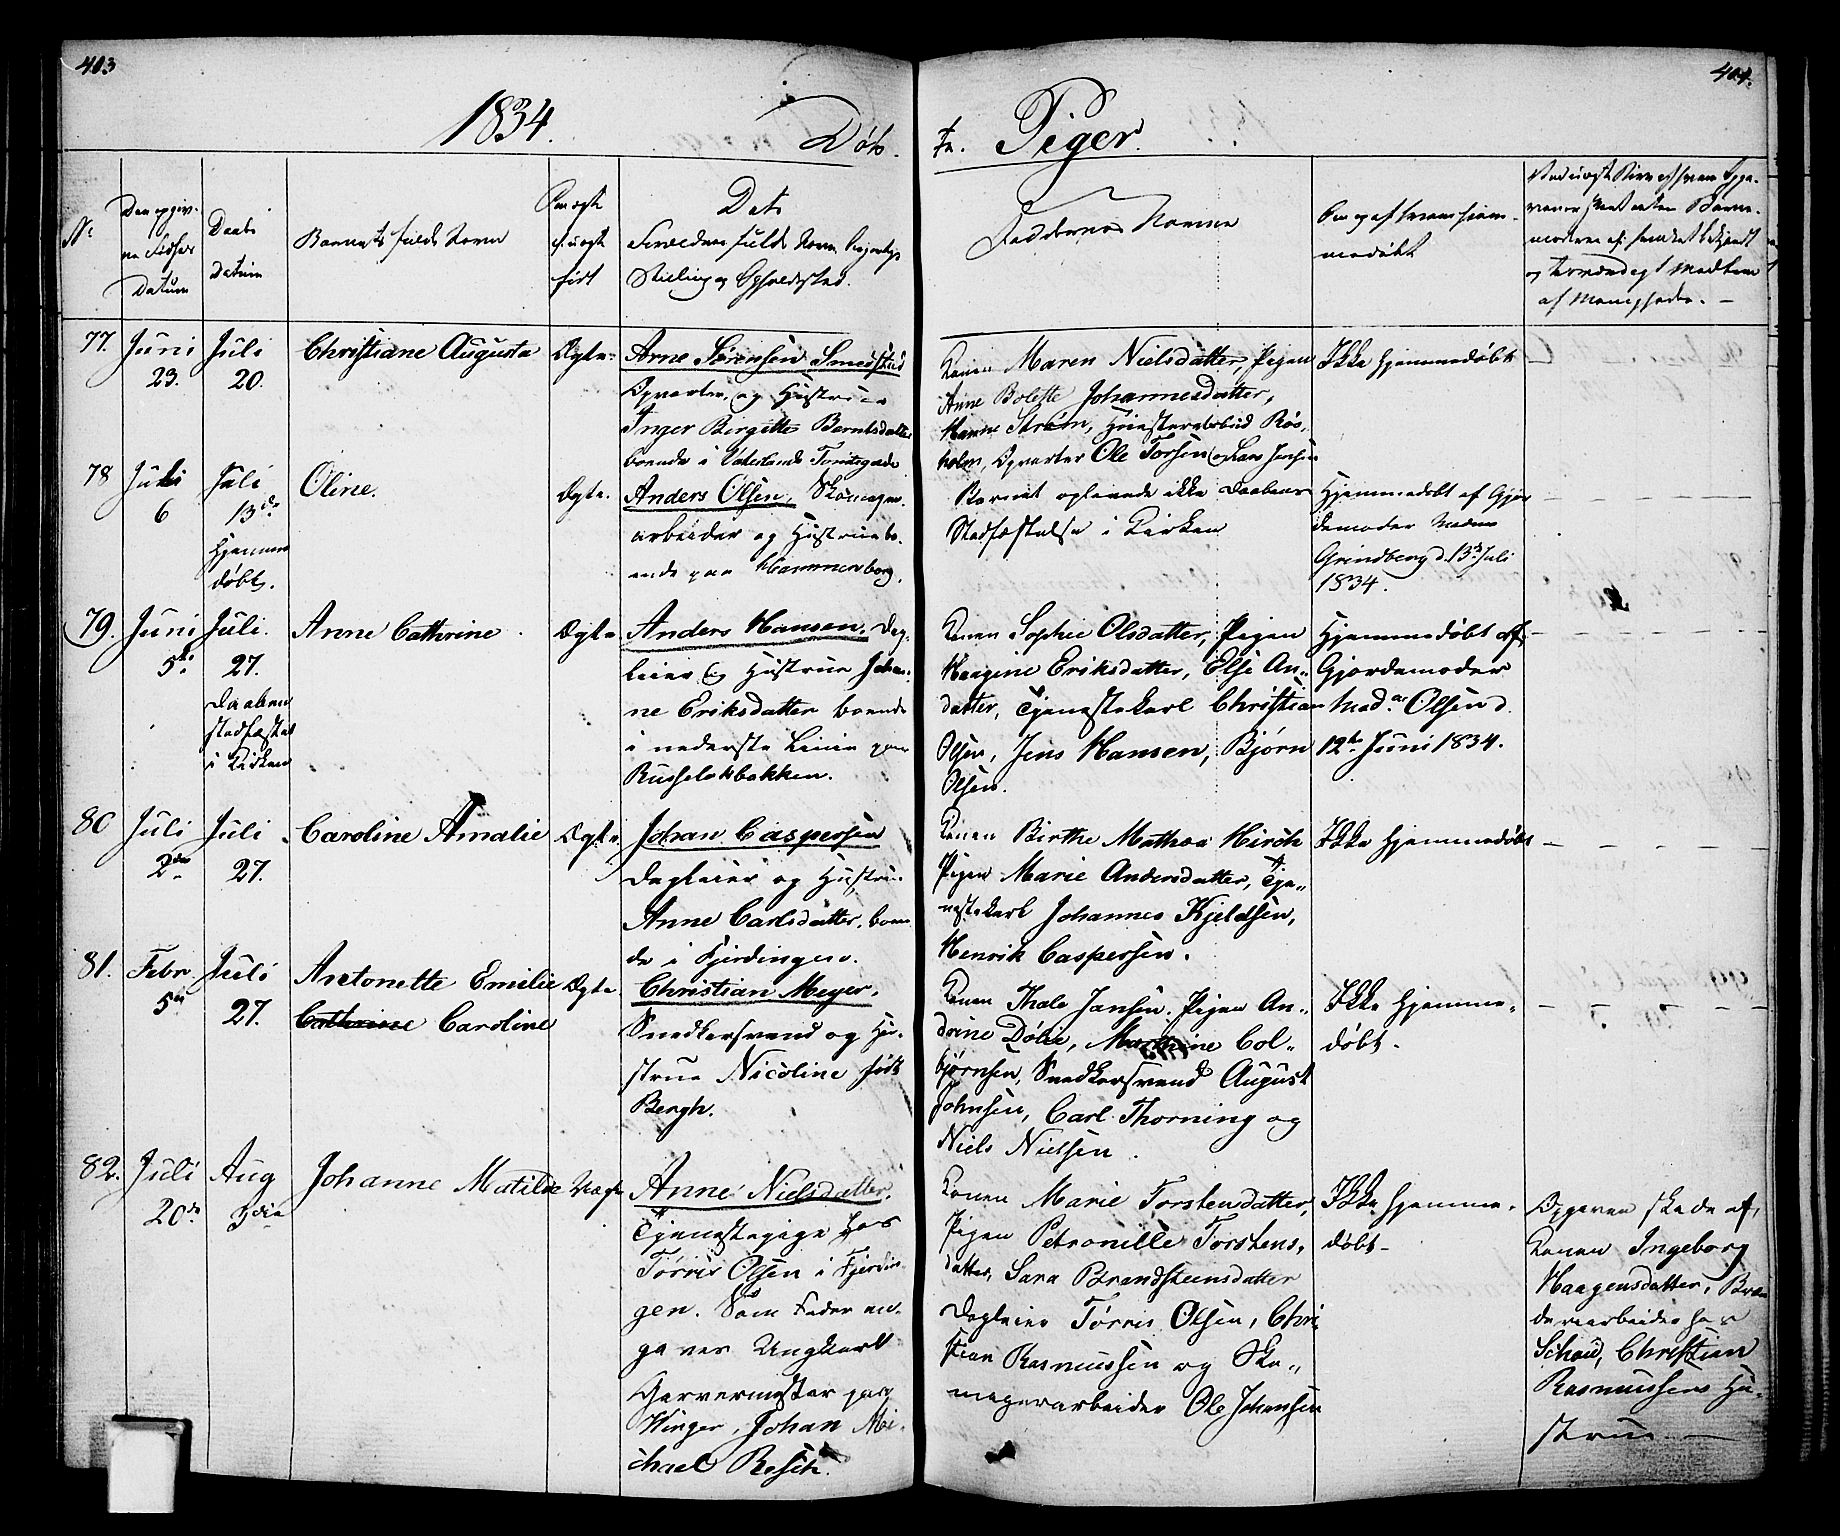 403
404.
1834.
Døb-
te. Piger.
No
Den opgiv-
ne Fødsels
Datum
Daabs
Datum
Barnets fulde Navn
Om ægte
el. uægte
født
Dets
Forældres fulde Navn
Stilling og Opholdssted.
Faddernes Navne
Om og af hvem hjem-
medøbt
77.
Juni
23.
Juli
20.
Christiane Augusta
Ægte
Arne Sørensen Smedstud
Opvarter, og Hustrue
Inger Birgitte Berntsdatter
boende i Vaterlands Torvegade
Konen Maren Nielsdatter, Pigen
Anne Bolette Johannesdatter,
Hanne Strøm,
holm, Opvarter Ole Torsen og Lars Jensen
Ikke hjemmedøbt
78
Juli
6
Juli
13de
Hjemme
døbt.
Oline.
Ægte.
Anders Olsen, Skomager
arbeider og Hustrue bo-
ende paa Hammersborg.
Barnet oplevede ikke Daabens
Stadfæstelse i Kirken
Hjemmedøbt af Gjor
demoder Madme
Grindberg d. 13de Juli
1834.
79.
Juni
5te
Juli.
27.
Daaben
stadfæstet
i Kirken
Anne Cathrine
Ægte
Anders Hansen, Dag-
leier og Hustrue Johan-
ne Eriksdatter boende
i nederste Linie paa
Russeløkbakken.
Konen Sophie Olsdatter, Pigen
Haagine Eriksdatter, Else An-
datter, Tjenestekarl Christian
Olsen, Jens Hansen, Bjørn
Olsen.
Hjemmedøbt af
Gjordemoder
Mad. Olsen d.
12te Juni 1834.
80
Juli
2den
Juli
27.
Caroline Amalie
Ægte
Johan Caspersen
Dagleier og Hustrue
Anne Carlsdatter, boen
de i Fjerdingen.
Konen Birthe Mathea Hirsch
Pigen Marie Andersdatter, Tje-
nestekarl Johannes Kjeldsen,
Henrik Caspersen.
Ikke hjemmedøbt
81.
Febr.
5te
Juli
27.
Antonette Emilie
Cathrine Caroline
Ægte
Christian Meyer,
Snedkersvend og Hu-
strue Nicoline født
Bergh.
Konen Thale Jansen, Pigen An-
drine Dølie, Marthine Col-
bjørnsen, Snedkersvend August
Johnsen, Carl Thorning og
Niels Nielsen.
Ikke hjemme-
døbt.
82.
Juli
20de
Aug
3die
Johanne Matilde
Uægte
Anne Nielsdatter,
Tjenestepige hos
Tørris Olsen i Fjerdin
gen. Som Fader an-
gaves Ungkarl
Garvermester paa
Winger, Johan Mi-
chael Resch.
Konen Marie Torstensdatter,
Pigen Petronille Torstens-
datter, Sara Brandsteensdatter
Dagleier Tørris Olsen, Chri
stian Rasmussen og Sko-
magerarbeider Ole Johansen
Ikke hjemme-
døbt-
Opgaven skede af,
Konen Ingeborg
Haagensdatter, Bræn
deriarbeider hos
Schou, Christian
Rasmussens Hu-
strue.